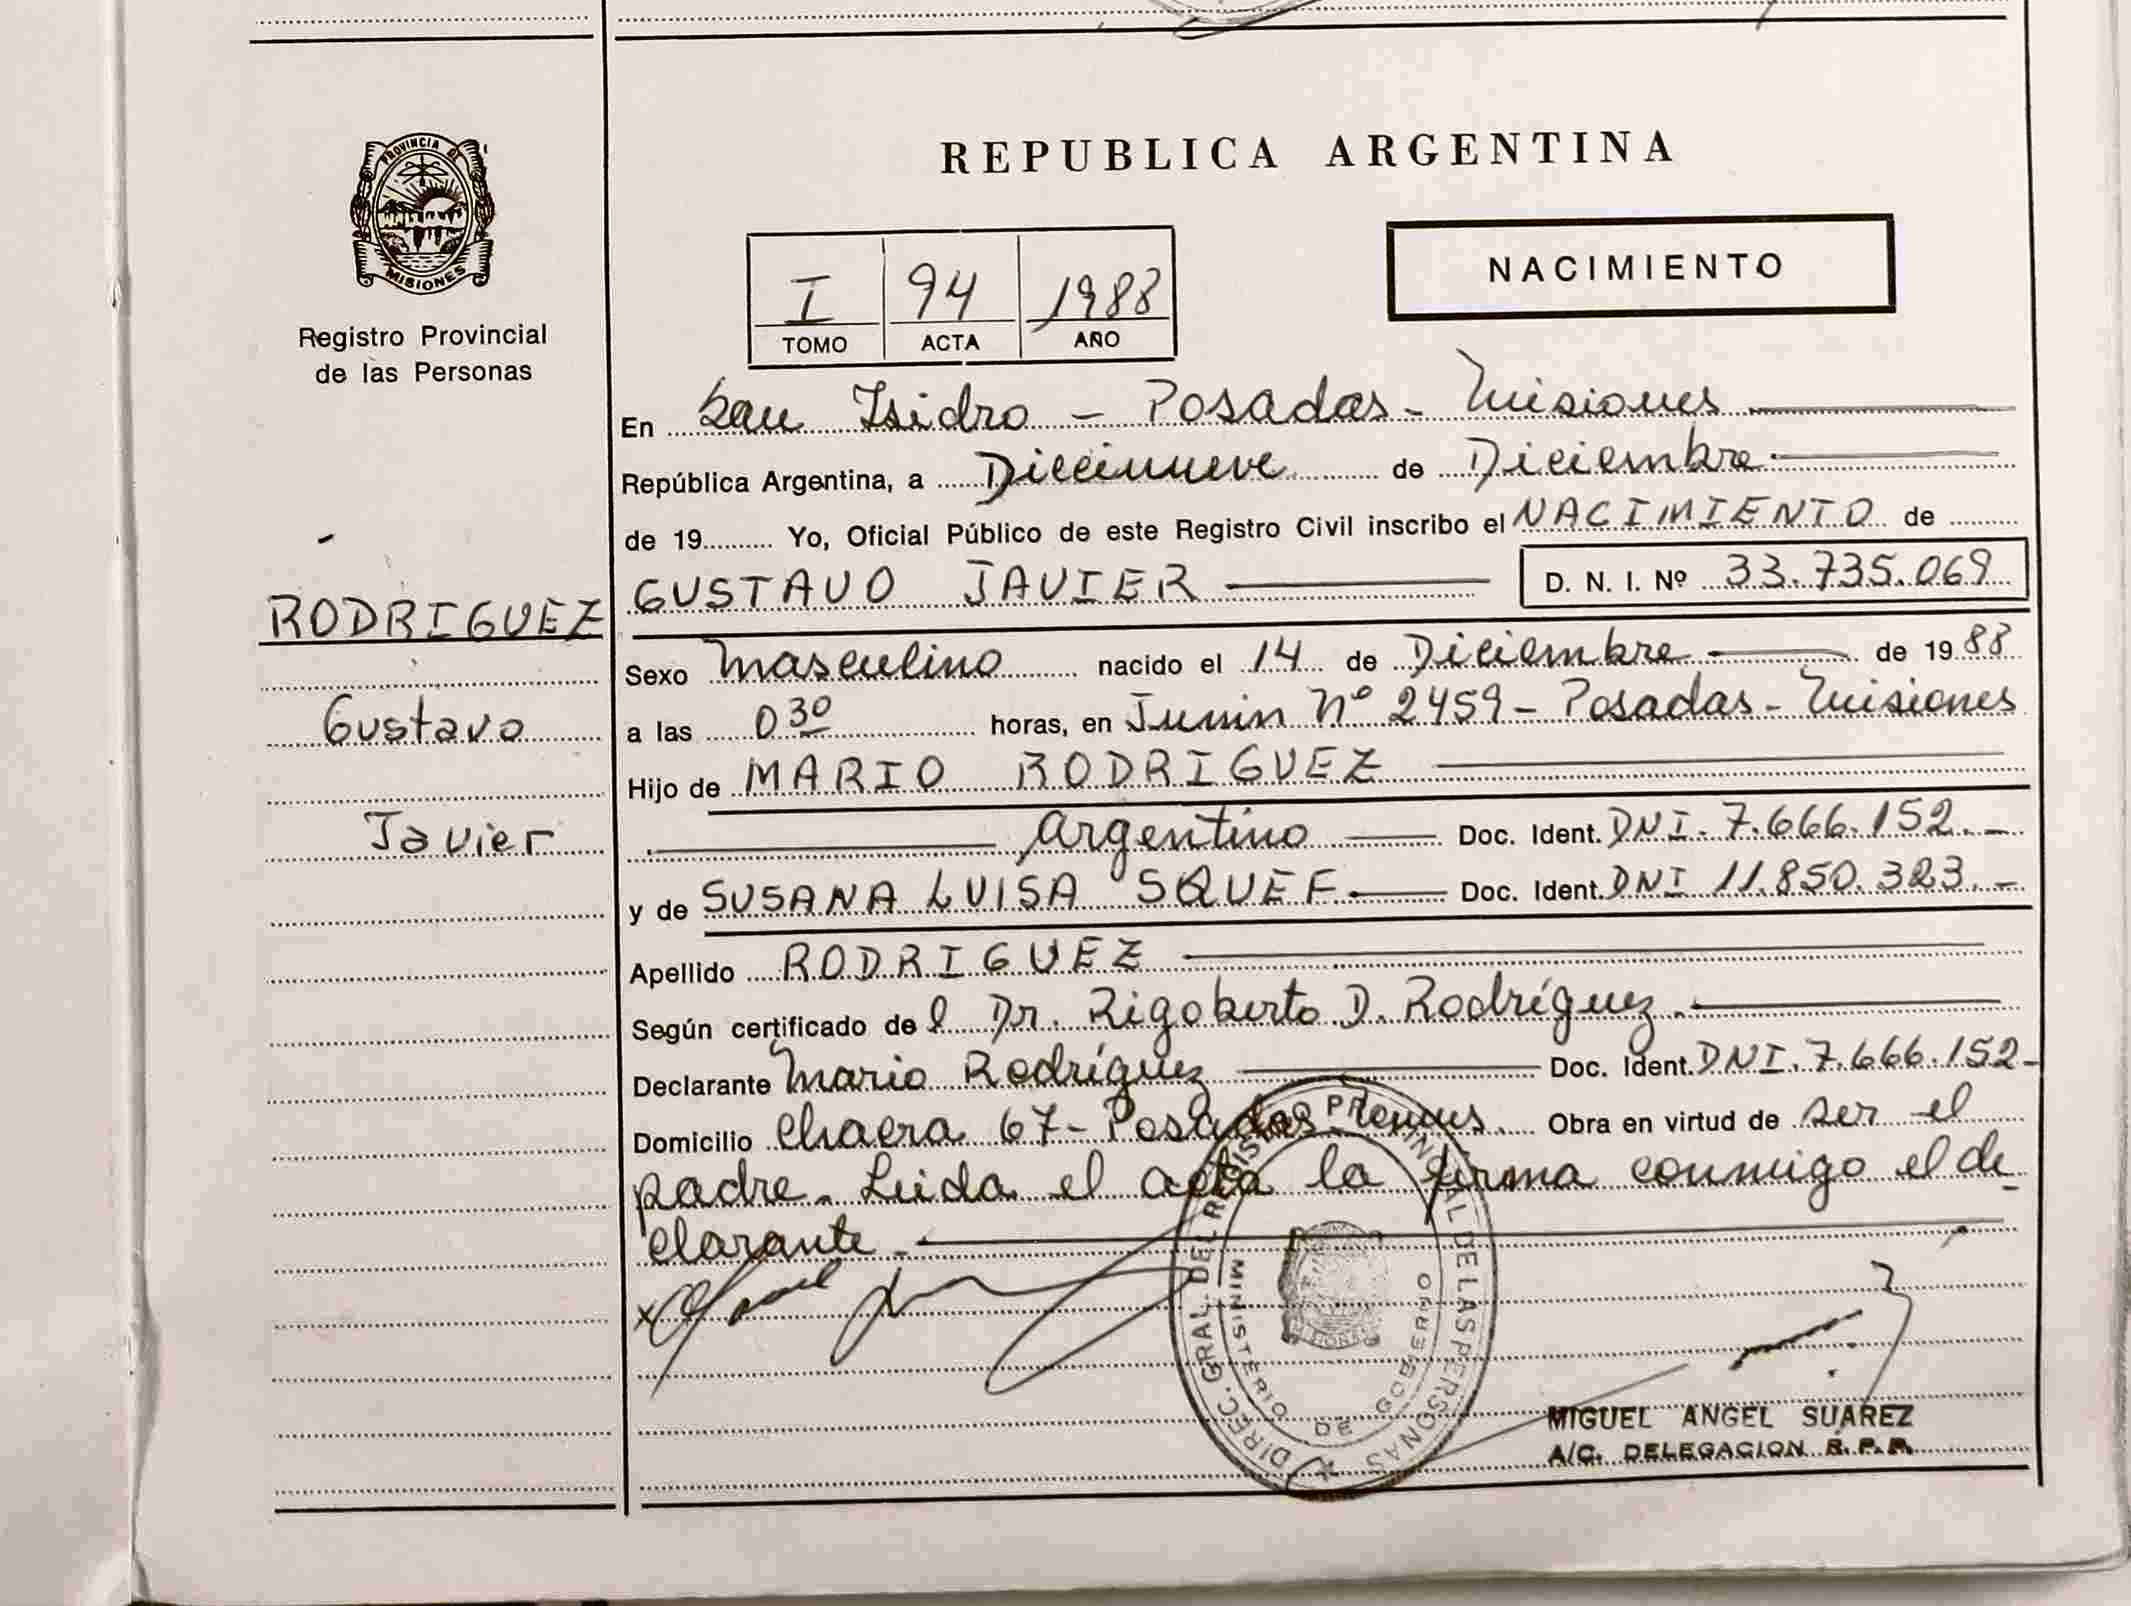 PROVINCIA DE
MISIONES
Registro Provincial
de las Personas
RODRIGUEZ
Gustavo
Javier
REPUBLICA ARGENTINA
I 94 1988
TOMO ACTA AÑO
NACIMIENTO
En San Isidro - Posadas - Misiones
República Argentina, a Diecinueve de Diciembre
de 19 Yo, Oficial Público de este Registro Civil inscribo el NACIMIENTO de
GUSTAVO JAVIER D. N. I. Nº 33.735.069
Sexo Masculino nacido el 14 de Diciembre de 1988
a las 0 30 horas, en Junin Nº 2459 - Posadas - Misiones
Hijo de MARIO RODRIGUEZ
Argentino Doc. Ident. DNI. 7.666.152. -
y de SUSANA LUISA SQUEF Doc. Ident. DNI 11.850.323. -
Apellido RODRIGUEZ
Según certificado del Dr. Rigoberto D. Rodríguez.
Declarante Mario Rodríguez Doc. Ident. DNI. 7.666.152 -
Domicilio Chacra 67 - Posadas Obra en virtud de ser el
padre. Leida el acta la firma conmigo el de
clarante.
x
DIREC. GRAL. DEL REGISTRO PROVINCIAL DE LAS PERSONAS
MINISTERIO DE GOBIERNO
MIGUEL ANGEL SUAREZ
A/C. DELEGACION R. P. P.